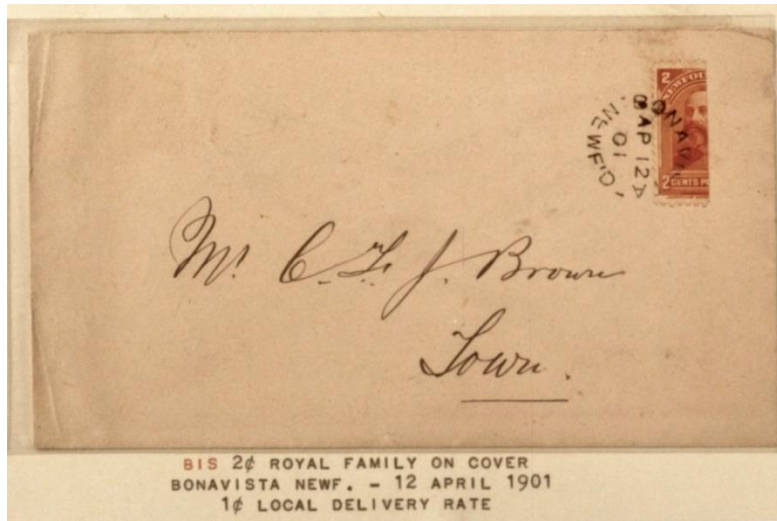 2
NEWFOU
BONAVI
AP 12
01
NEWF'D
2 CENTS PO
Mr. C. L. J. Brown
Town.
BIS 2¢ ROYAL FAMILY ON COVER
BONAVISTA NEWF. - 12 APRIL 1901
1¢ LOCAL DELIVERY RATE